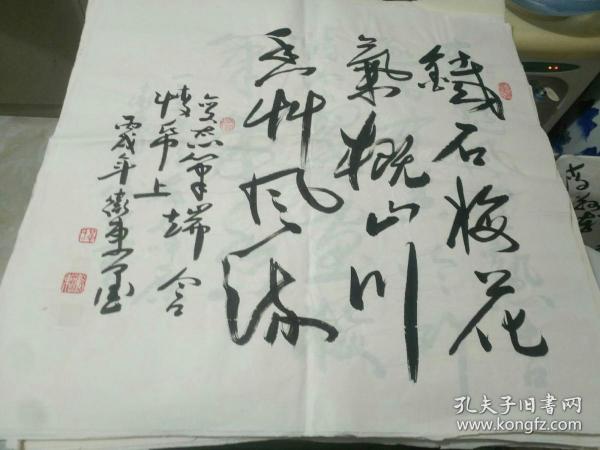 鐵石梅花
氣概山川
香艸風流
變态筆端含
情帋上
丙戌年衛東墨
孔夫子旧书网
www.kongfz.com